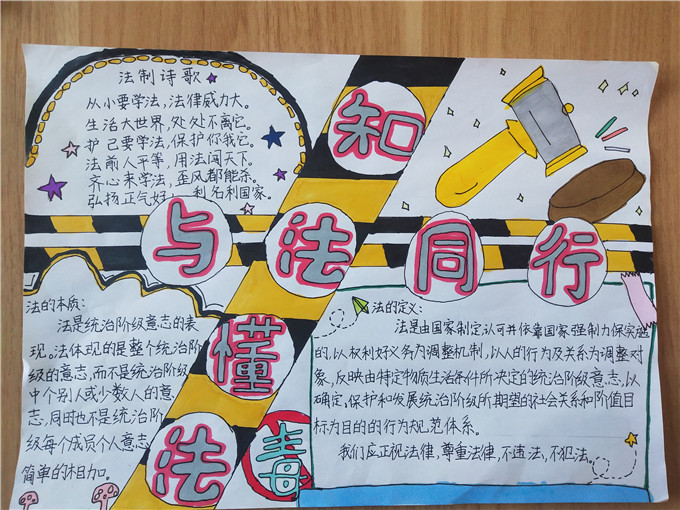 法制诗歌
从小要学法，法律威力大。
生活大世界，处处不离它。
护己要学法，保护你我它。
法前人平等，用法闯天下。
齐心来学法，歪风都能杀。
弘扬正气好，利名利国家。
知
与法同行
懂
法
毒
法的本质：
法是统治阶级意志的表
现。法体现的是整个统治阶
级的意志，而不是统治阶级
中个别人或少数人的意
志，同时也不是统治阶
级每个成员个人意志
简单的相加。
法的定义：
法是由国家制定认可并依靠国家强制力保实施
的，以权利好义务为调整机制，以人的行为及关系为调整对
象，反映由特定物质生活条件所决定的统治阶级意志，以
确定，保护和发展统治阶级所期望的社会关系和价值目
标为目的的行为规范体系。
我们应正视法律，尊重法律，不违法，不犯法。